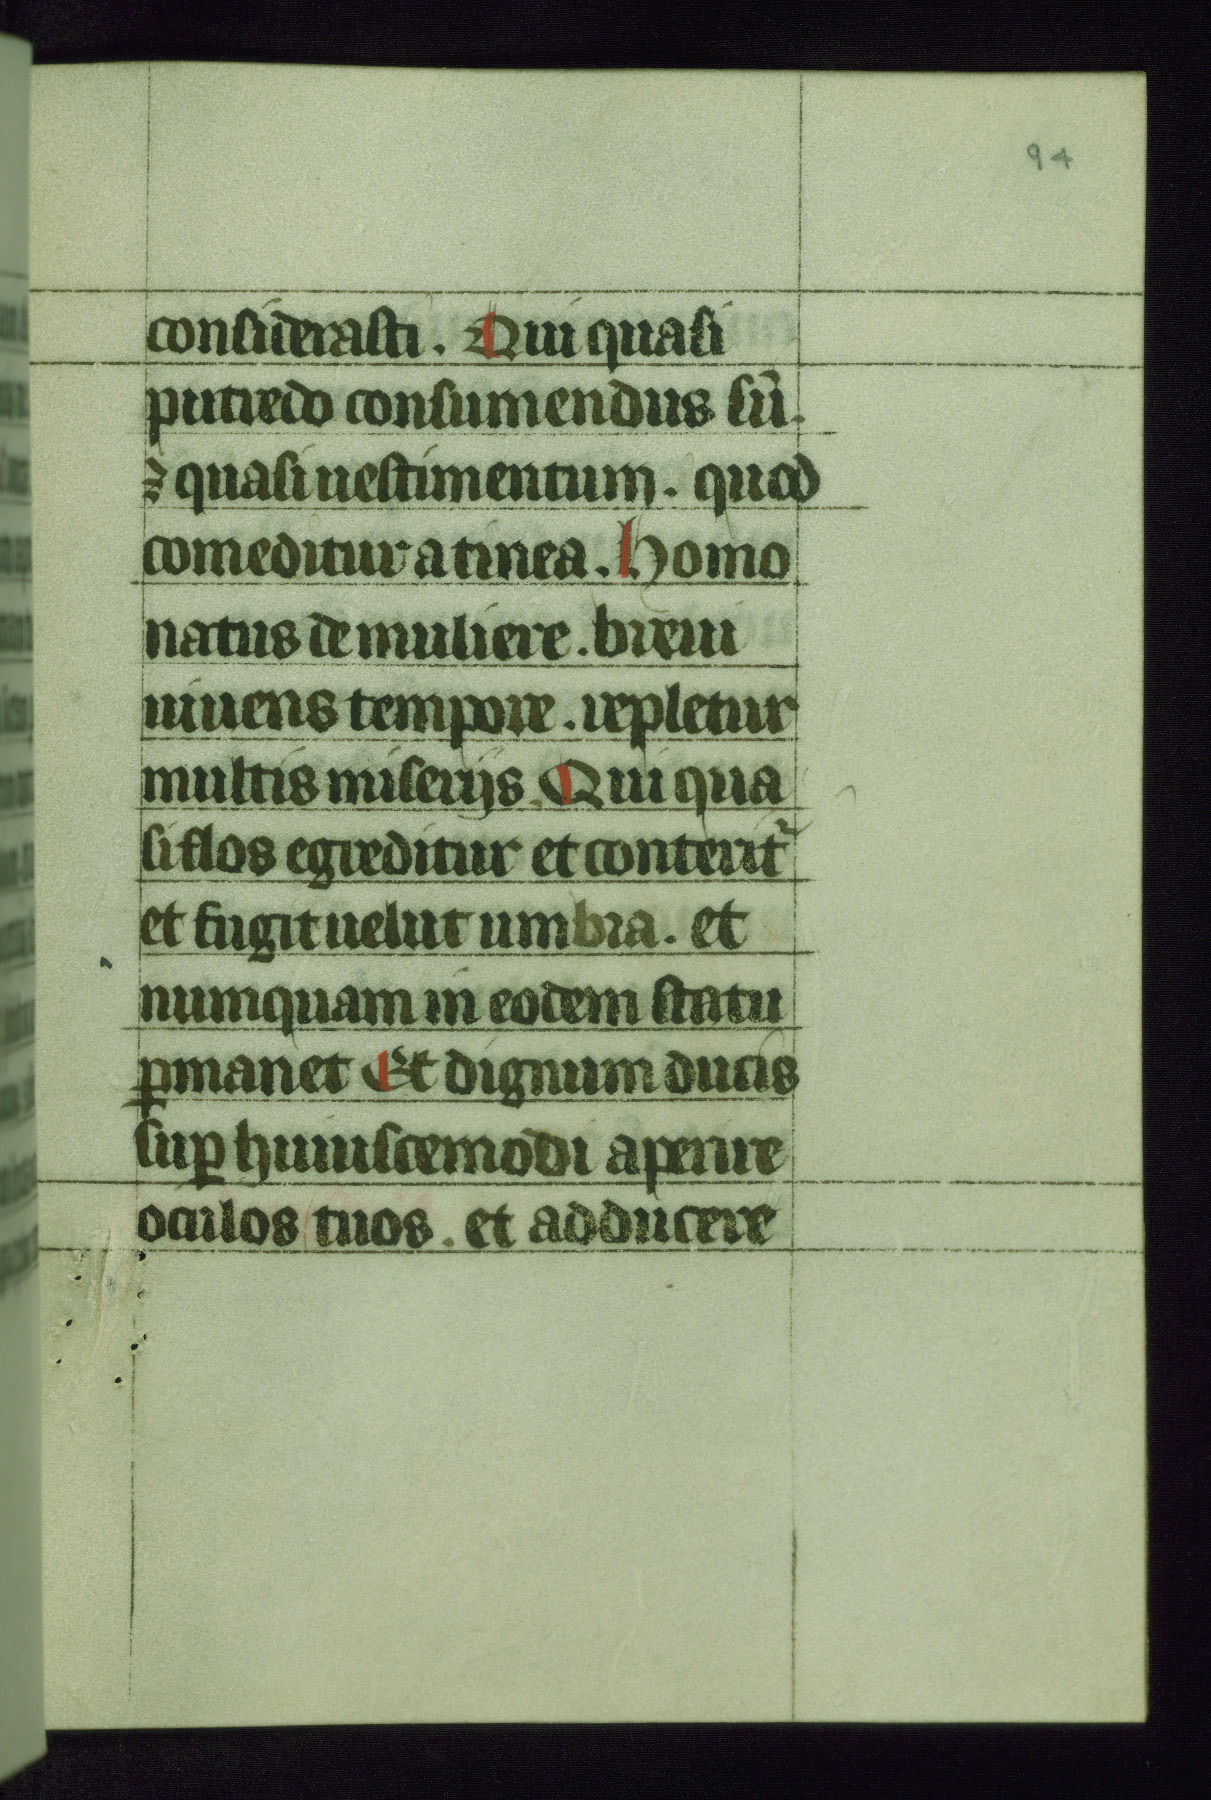 94
considerasti. Qui quasi
putredo consumendus sū.
⁊ quasi uestimentum. quod
comeditur a tinea. Homo
natus de muliere. breui
uiuens tempore. repletur
multis miserijs. Qui qua
si flos egreditur et conterit᷑
et fugit uelut umbra. et
numquam in eodem statu
ꝑmanet Et dignum ducis
suꝑ huiuscemodi aperire
oculos tuos. et adducere